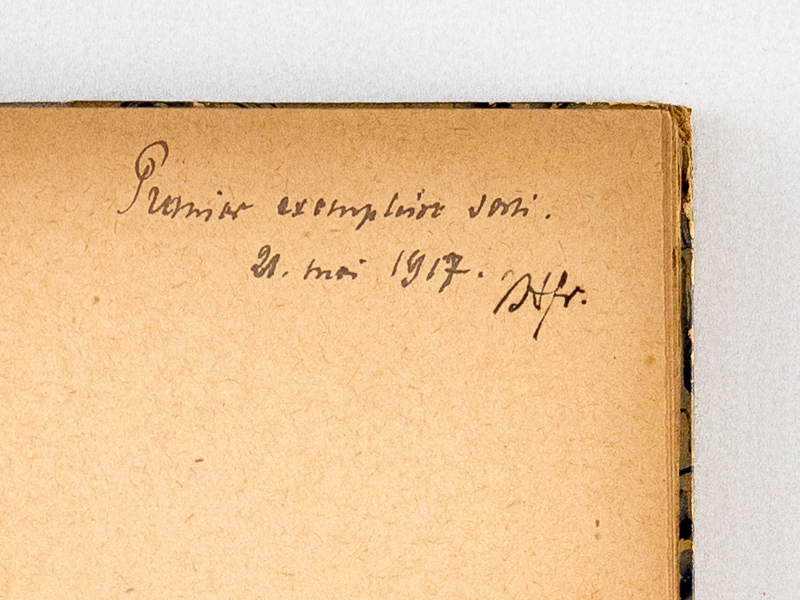 Premier exemplaire sorti.
21. mai 1917.